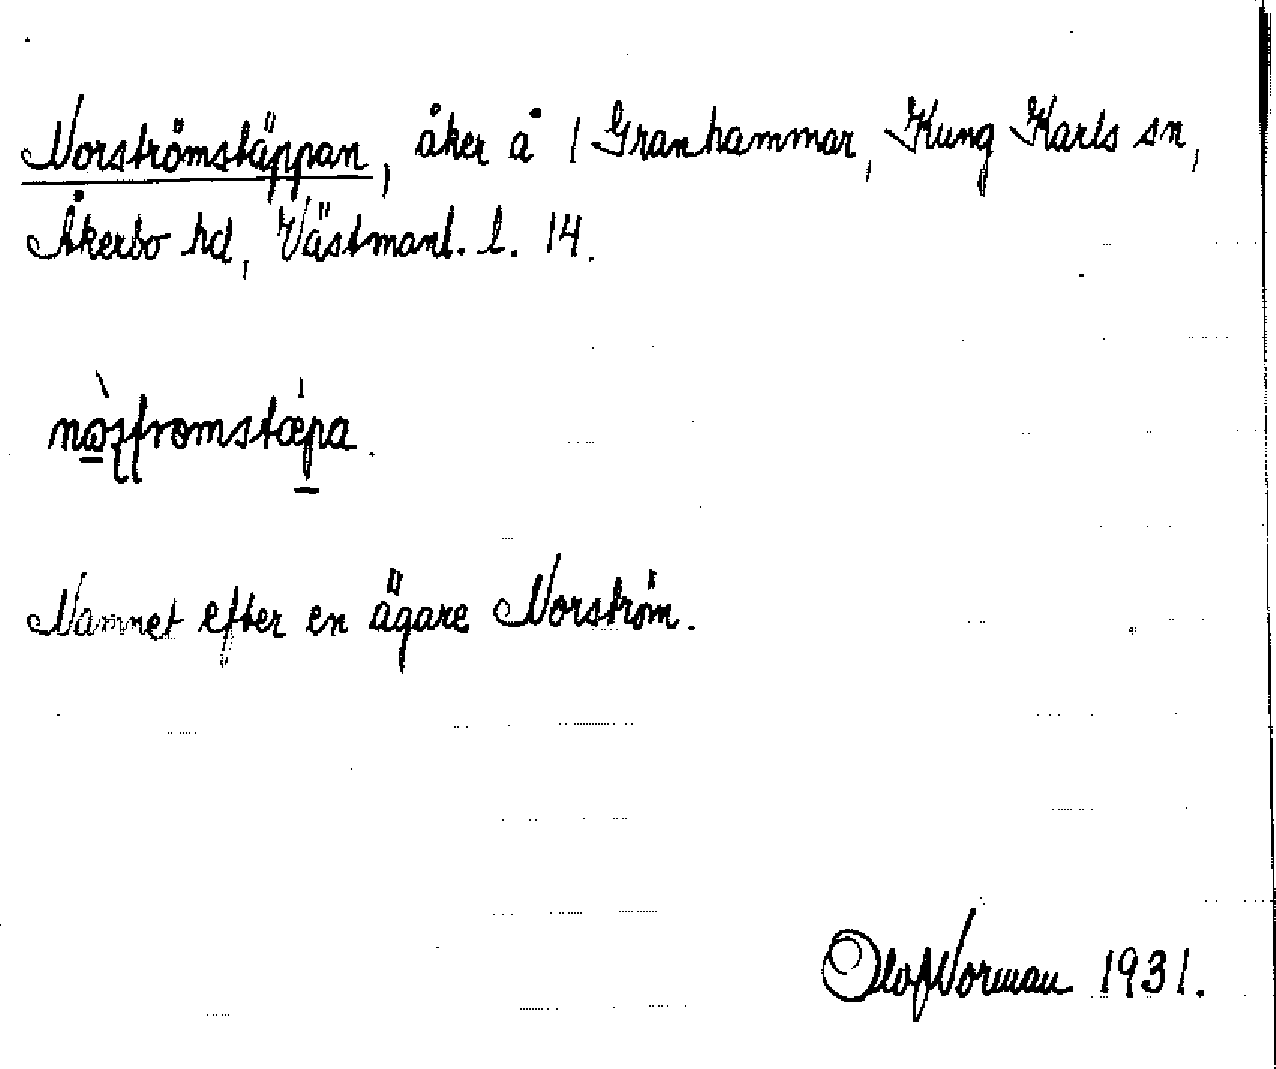 Norströmstäppan, åker å 1 Granhammar, Kung Karls sn,
Åkerbo hd, Västmanl. l. 14.
Namnet efter en ägare Norström.
Olof Norman 1931.